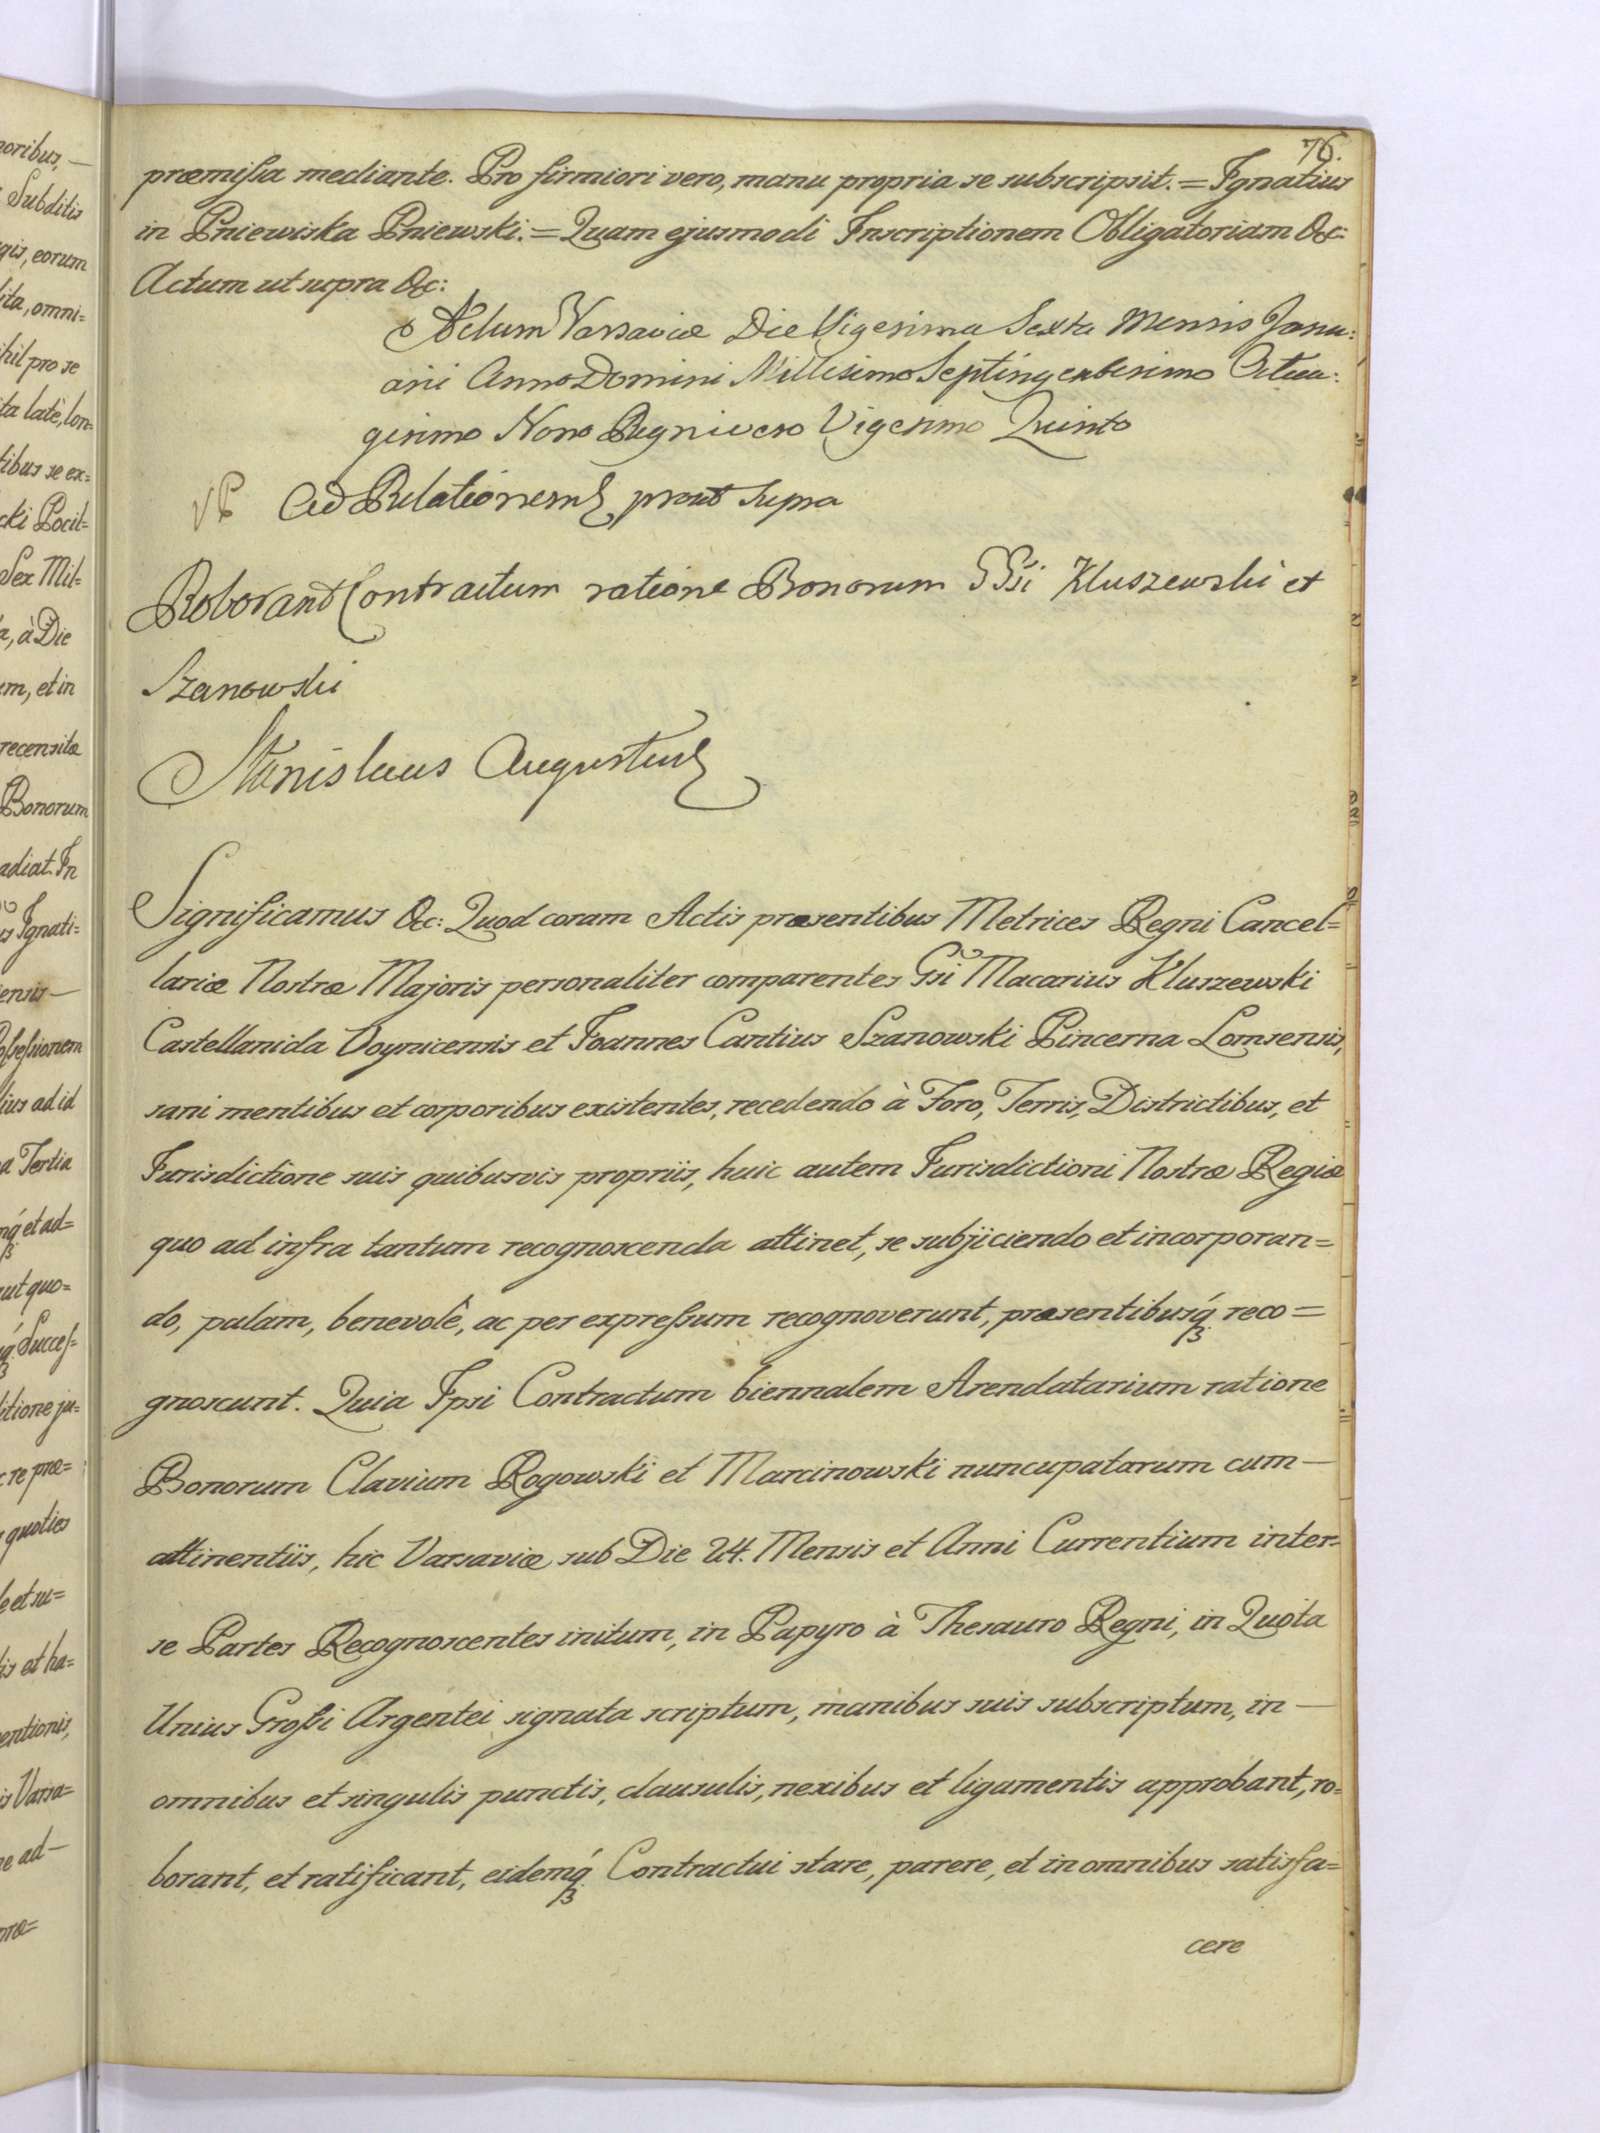 76.
præmissa mediante. Pro firmiori vero, manu propria se subscripsit. = Ignatius
in Pniewiska Pniewski. = Quam ejusmodi Inscriptionem Obligatoriam &c:
Actum ut supra &c:
Actum Varsaviæ Die Vigesima Sexta Mensis Janu:
arii Anno Domini Millesimo Septingentesimo Octua:
gesimo Nono Regni vero Vigesimo Quinto
Ad Relationem prout supra
Roborant Contractum ratione Bonorum GGsi Kluszewski et
Szanowski
Stanislaus Augustus
Significamus &c: Quod coram Actis præsentibus Metrices Regni Cancel=
lariæ Nostræ Majoris personaliter comparentes Gsi Macarius Kluszewski
Castellanida Voynicensis et Joannes Cantius Szanowski Pincerna Lomsensis,
sani mentibus et corporibus existentes, recedendo à Foro, Terris, Districtibus, et
Jurisdictione suis quibusvis propriis, huic autem Jurisdictioni Nostræ Regiæ
quo ad infra tantum recognoscenda attinet, se subjiciendo et incorporan=
do, palam, benevolè, ac per expressum recognoverunt, præsentibusq́ reco=
gnoscunt. Quia Ipsi Contractum biennalem Arendatarium ratione
Bonorum Clavium Rogowski et Marcinowski nuncupatarum cum —
attinentiis, hic Varsaviæ sub Die 24. Mensis et Anni Currentium inter=
se Partes Recognoscentes initum, in Papyro à Thesauro Regni, in Quota
Unius Grossi Argentei signata scriptum, manibus suis subscriptum, in —
omnibus et singulis punctis, clausulis, nexibus et ligamentis approbant, ro=
borant, et ratificant, eidemq́ Contractui stare, parere, et in omnibus satisfa=
cere